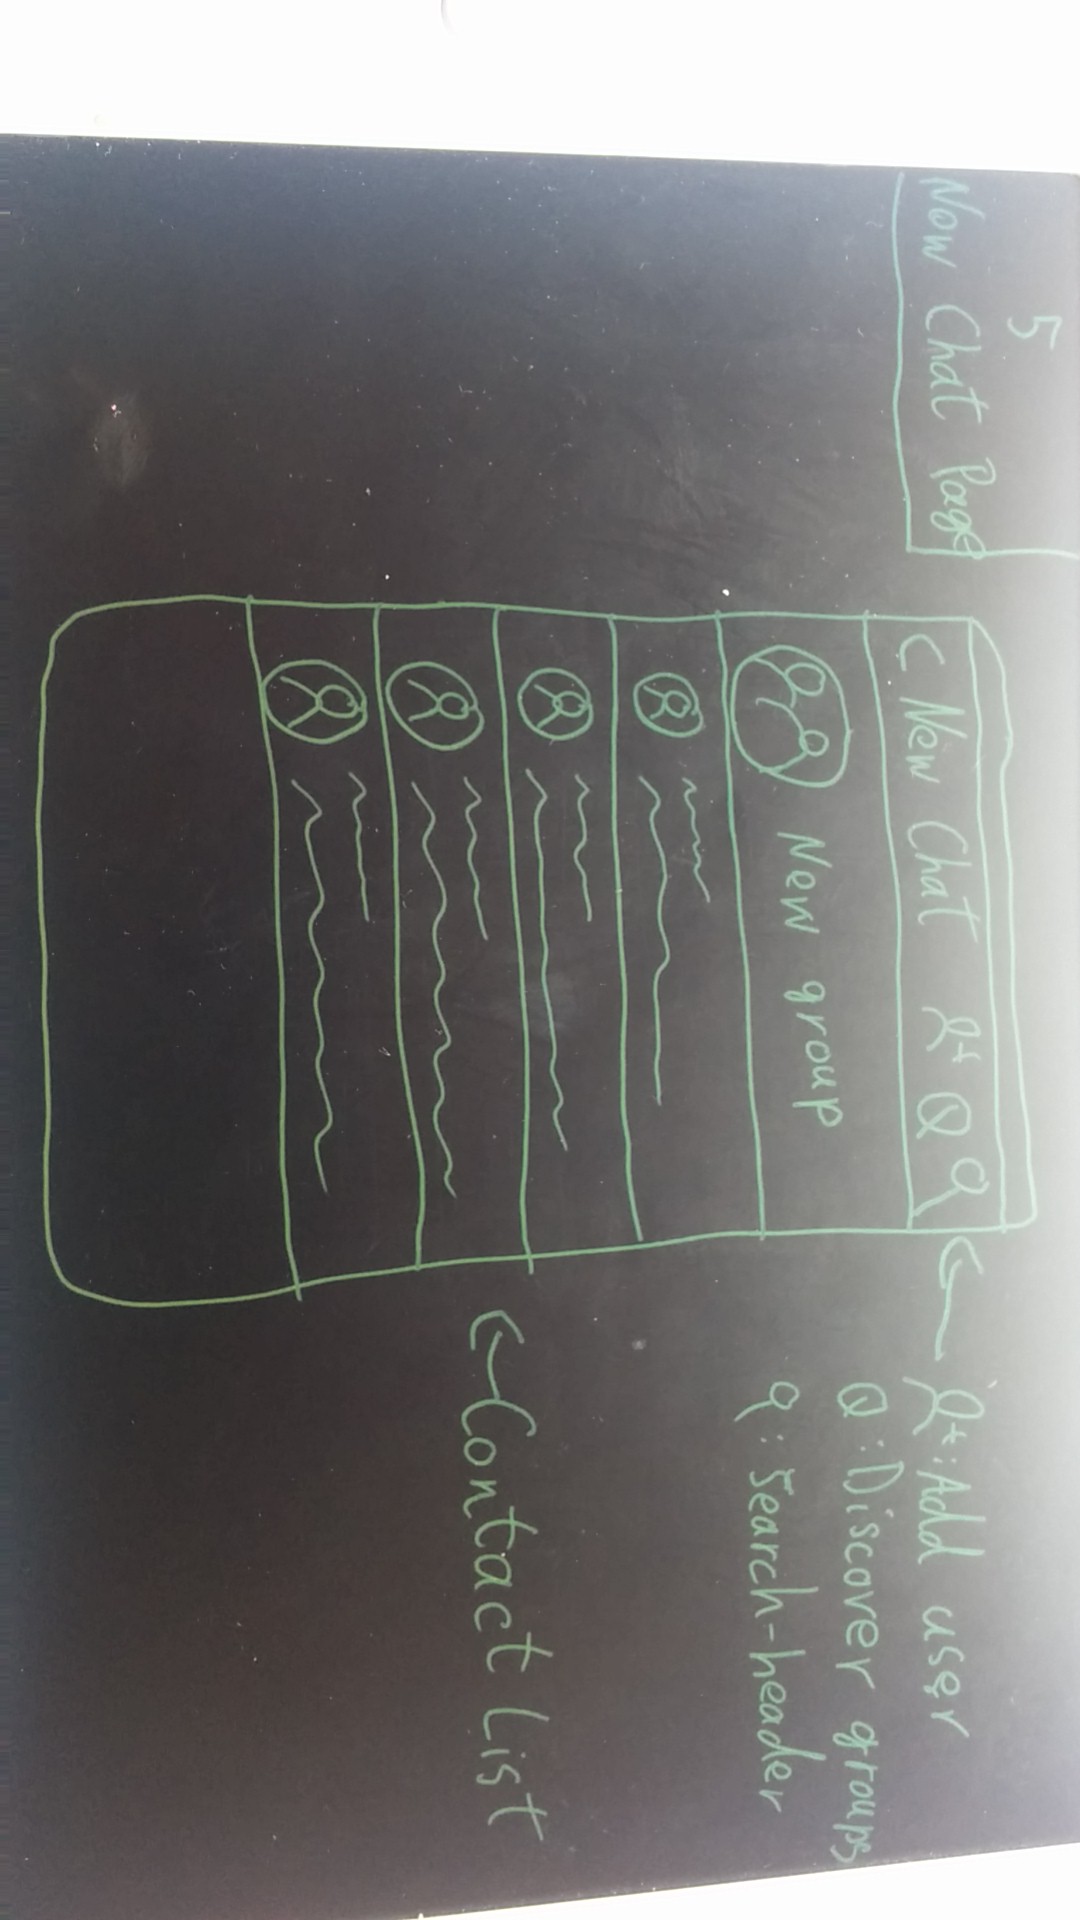 5
New Chat Page
< New Chat
New group
: Add user
: Discover groups
: Search-header
Contact List